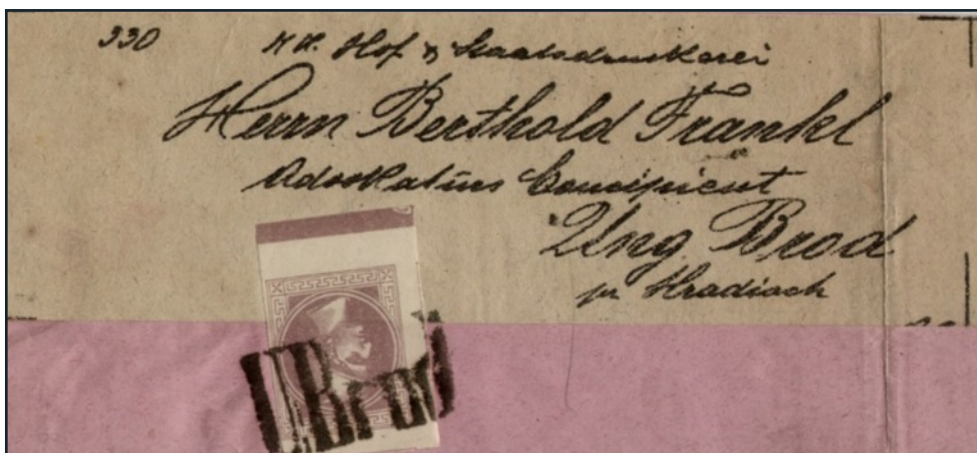 330
K.K. Hof & Staatsdruckerei
Herrn Berthold Frankl
Advokaturs Concipient
Ung. Brod
pr Hradisch
U.Brod